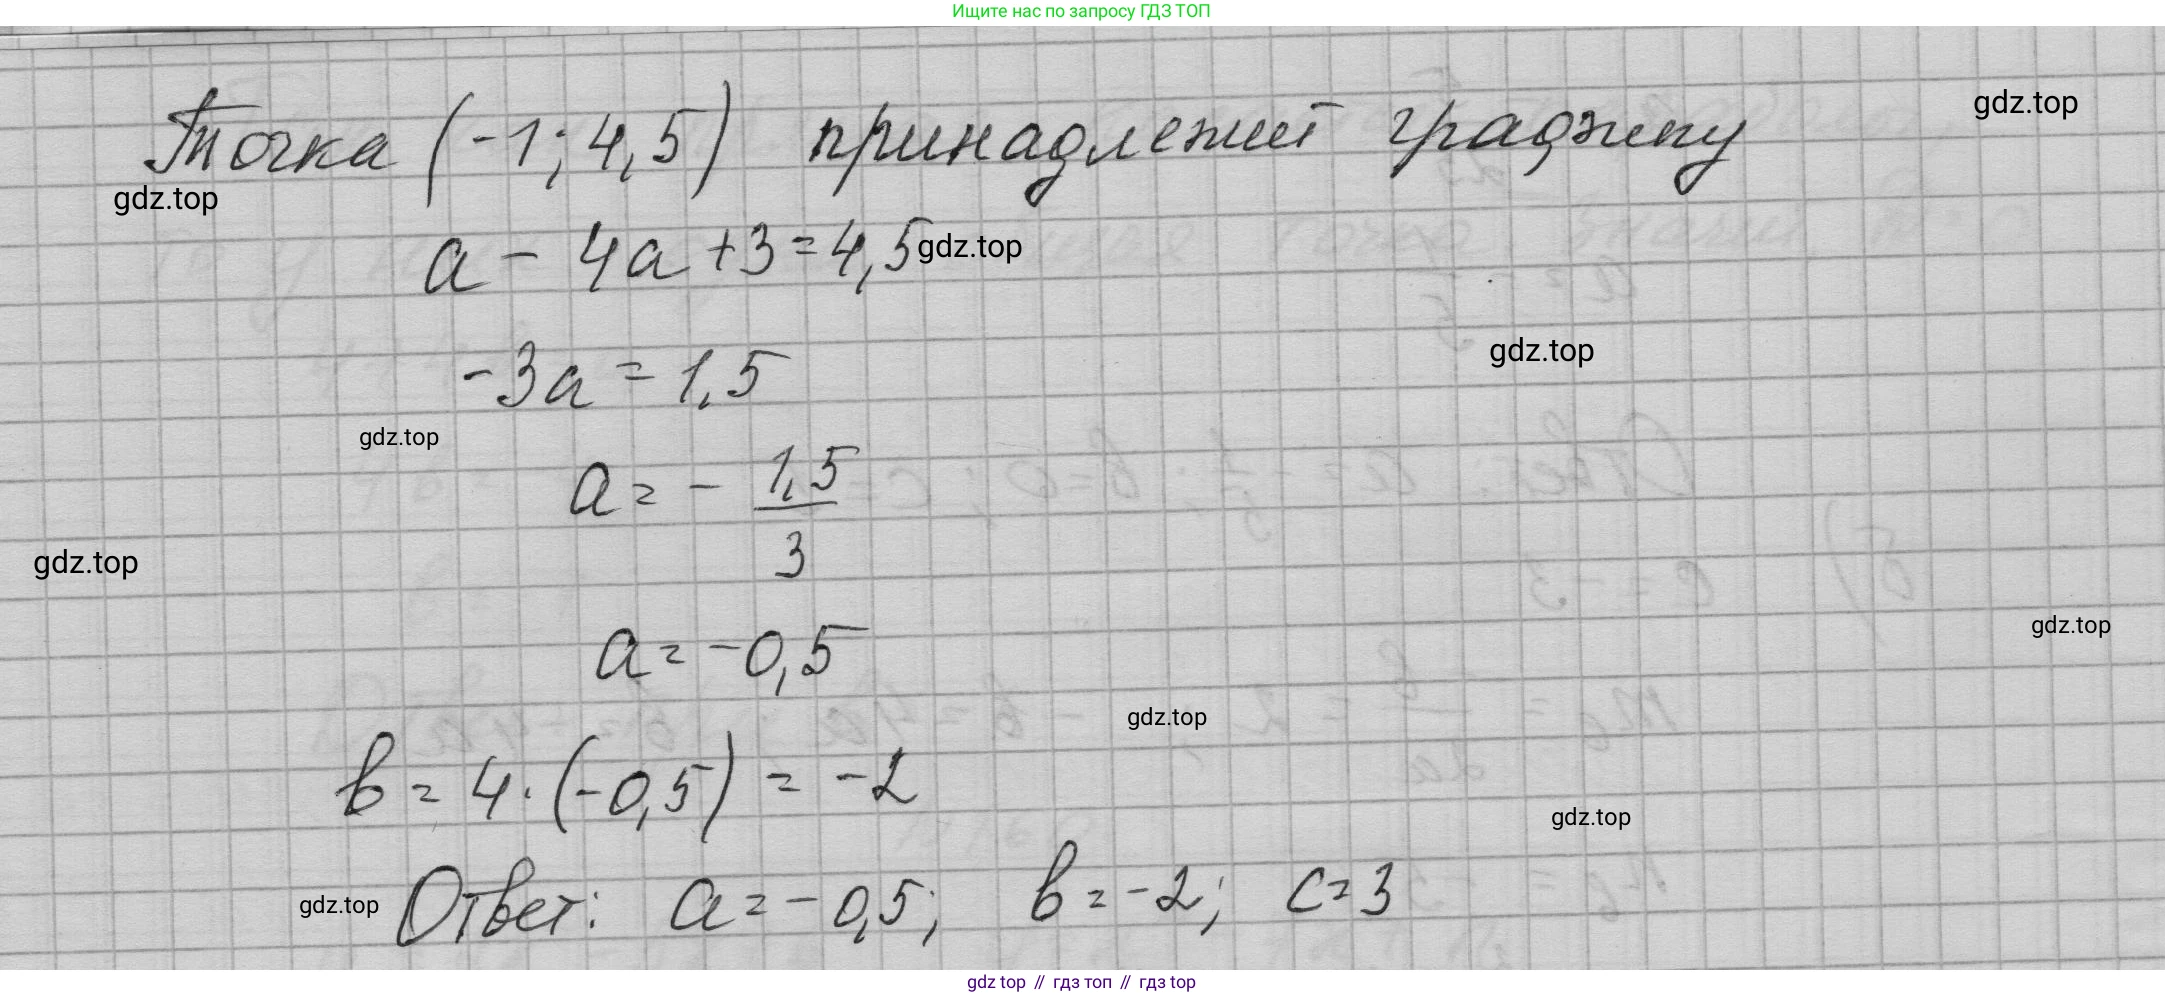 Ищите нас по запросу ГДЗ ТОП
Точка (-1; 4,5) принадлежит графику
gdz.top
gdz.top
a - 4a + 3 = 4,5
gdz.top
-3a = 1,5
gdz.top
gdz.top
a = - 1,5/3
gdz.top
a = -0,5
gdz.top
gdz.top
b = 4 · (-0,5) = -2
gdz.top
Ответ: a = -0,5; b = -2; c = 3
gdz.top
gdz top // гдз топ // гдз top